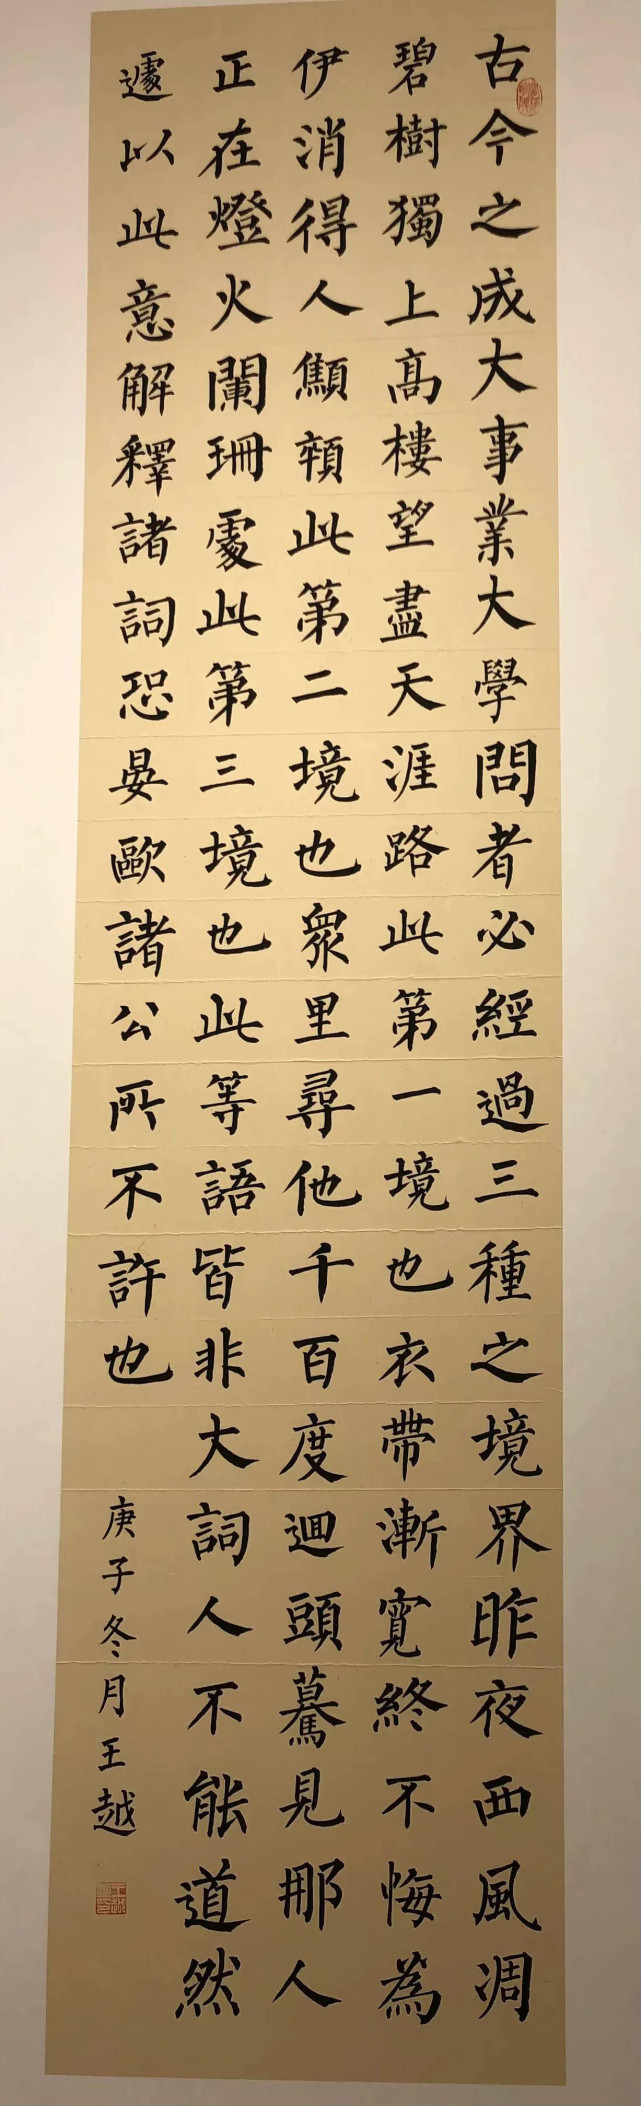 古今之成大事業大學問者必經過三種之境界昨夜西風凋
碧樹獨上高樓望盡天涯路此第一境也衣帶漸寬終不悔為
伊消得人顦顇此第二境也眾里尋他千百度迴頭驀見那人
正在燈火闌珊處此第三境也此等語皆非大詞人不能道然
遽以此意解釋諸詞恐晏歐諸公所不許也
庚子冬月王越